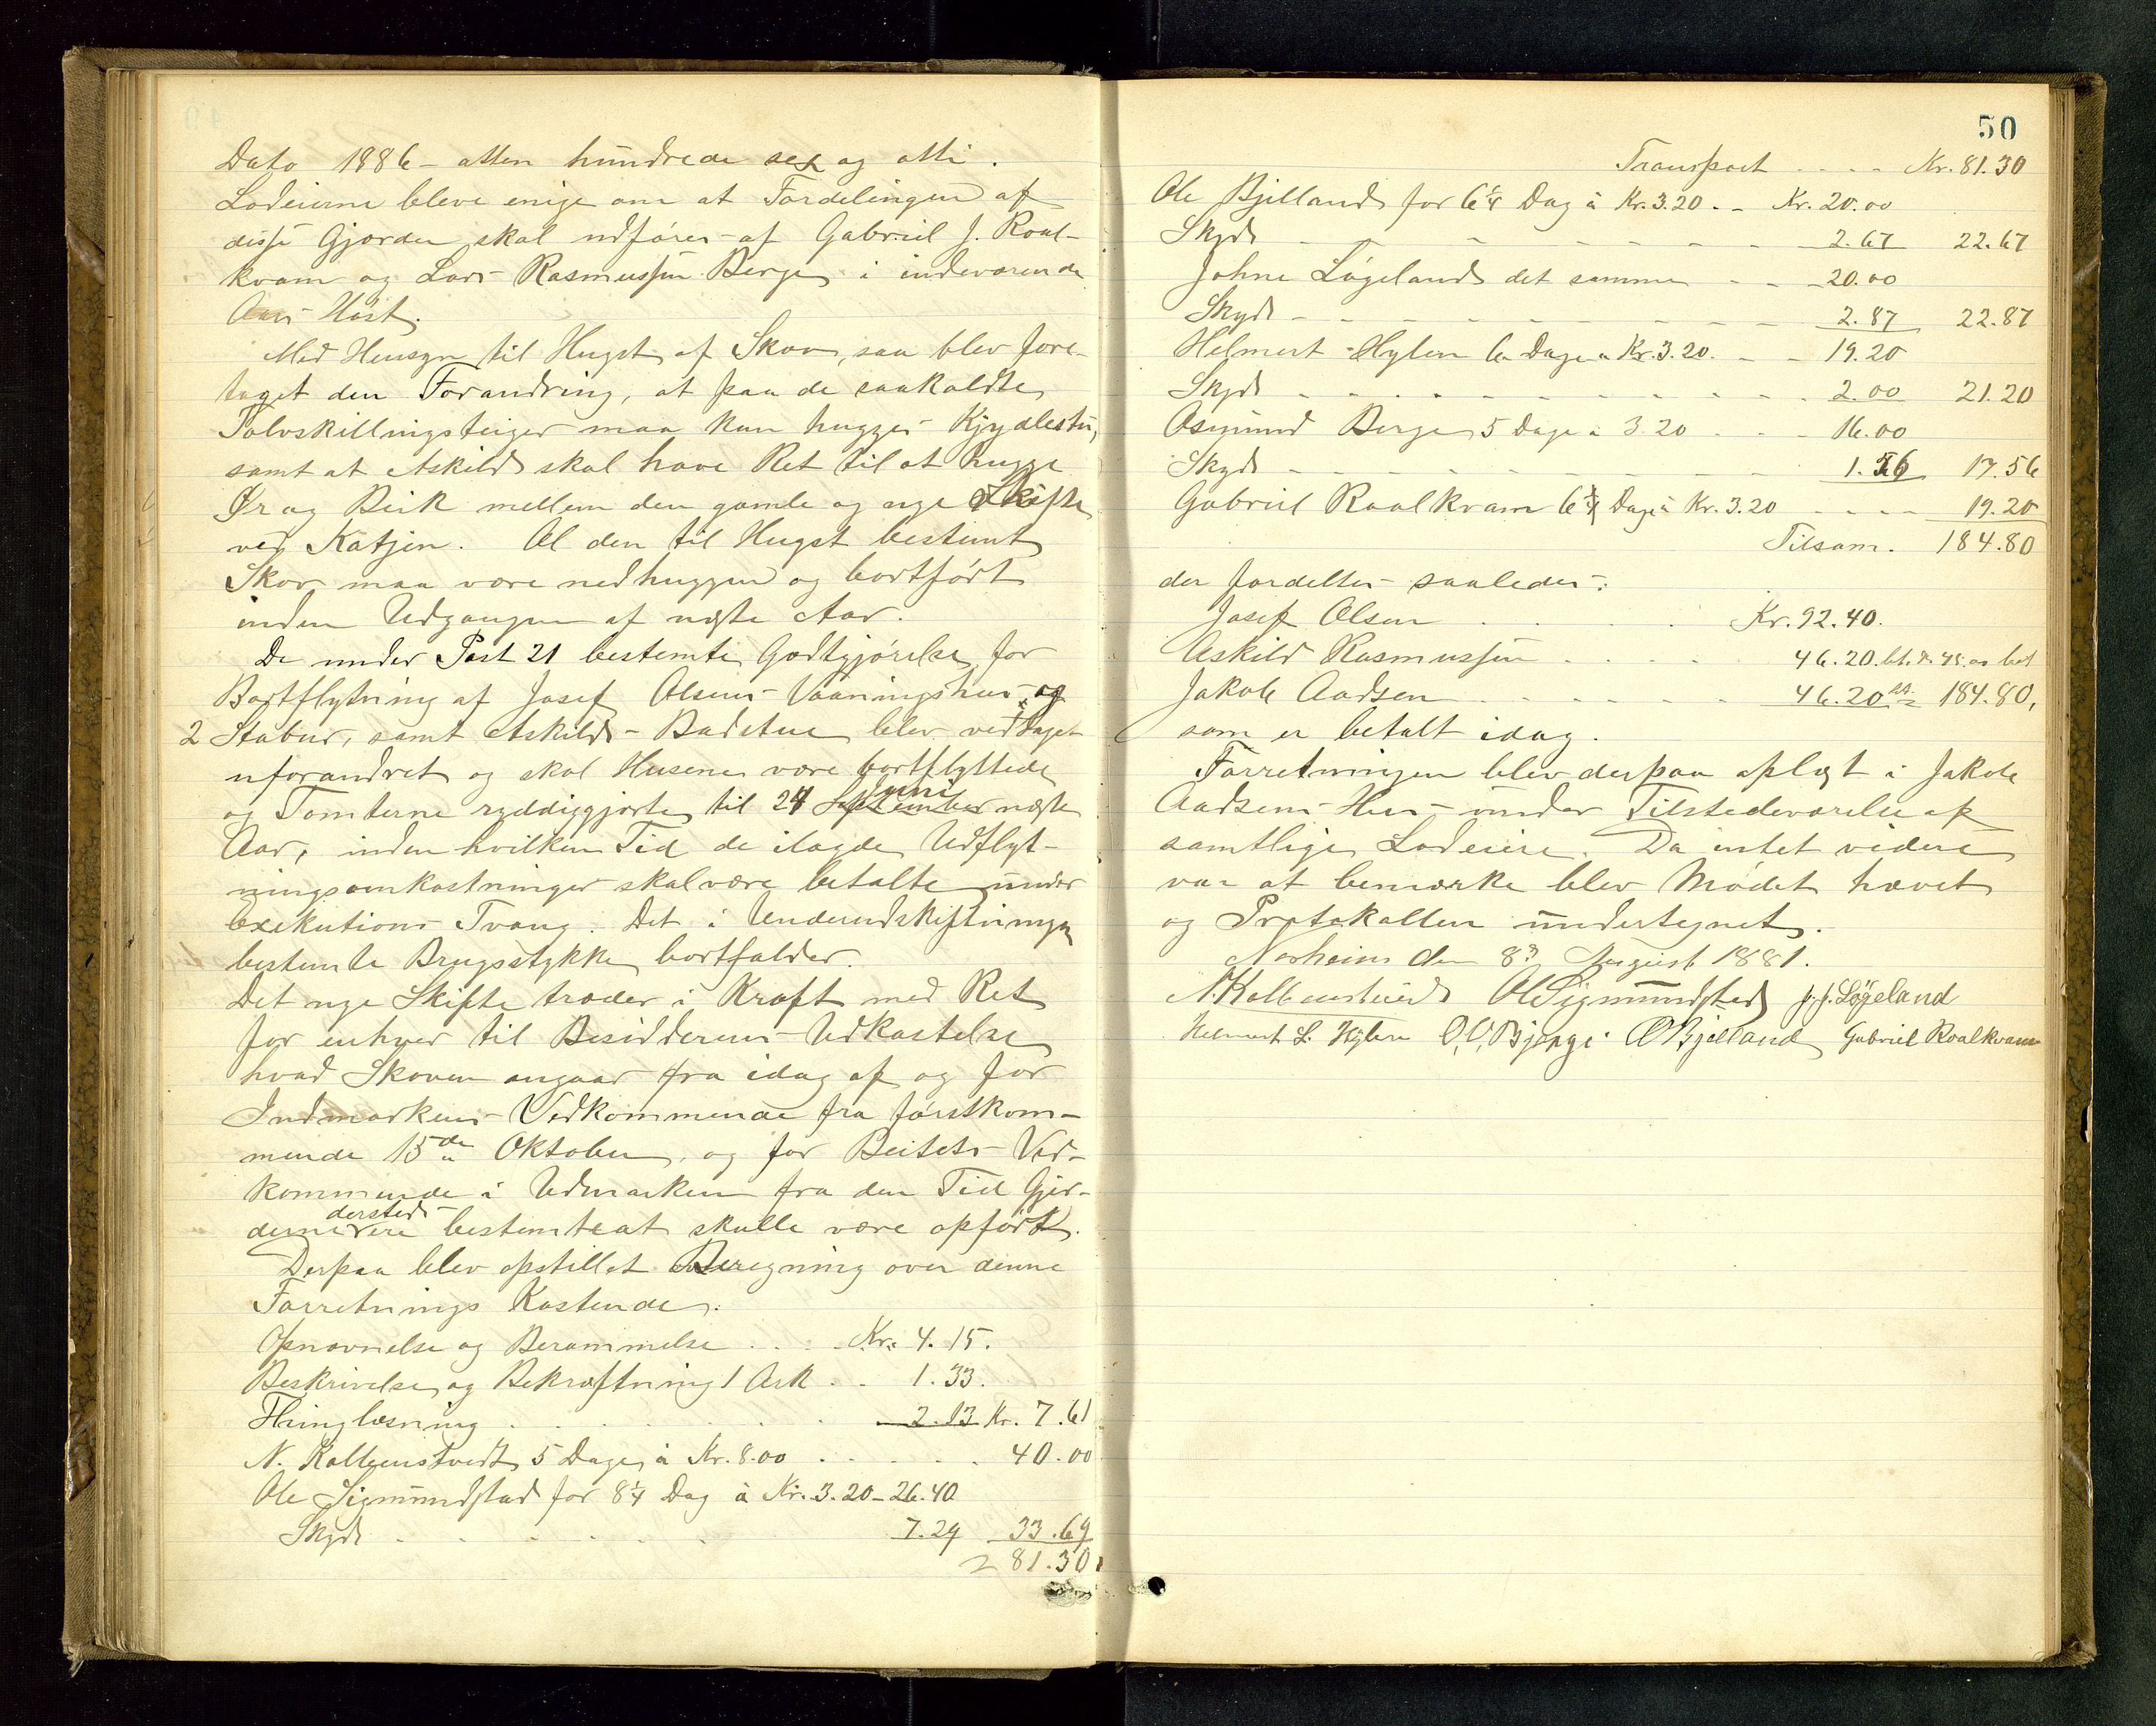 Dato 1886 - atten hundrede sex og otti.
Lodeierne bleve enige om at Fordelingen af
disse Gjærder skal udføres af Gabriel J. Roal-
kvam og Lars Rasmussen Berge i indeværende
Aars Høst.
Med Hensyn til Hugst af Skov, saa blev fore-
taget den Forandring, at paa de saakaldte
Tolvskillingsteiger maa kun hugges
samt at Askild skal have Ret til at hugge
Or og Birk mellem den gamle og nye Skifte
ved Katjen. Al den til Hugst bestemt
Skov maa være nedhuggen og bortført
inden Udgangen af næste Aar.
De under Post 21 bestemte Godtgjørelse for
Bortflytning af Josef Olsens Vaaningshus og
2 Stabur, samt Askilds Badstue blev vedtaget
uforandret og skal Husene være bortflyttede
og Tomterne ryddiggjorte til 24 September Juni næste
Aar, inden hvilken Tid de ilagde Udflyt-
ningsomkostninger skal være betalte under
Exekutions Tvang. Det i Underudskiftningen
bestemte Brugsstykke bortfalder.
Det nye Skifte træder i Kraft med Ret
for enhver til Besidderens Udkastelse
hvad Skoven angaar fra idag af og for
Indmarkens Vedkommende fra førstkom-
mende 15de Oktober, og for Beitets Ved-
kommende i Udmarken fra den Tid Gjær-
derne dersteds ere bestemte at skulle være opført.
Derpaa blev opstillet Beregning over denne
Forretnings Kostende.
Opnævnelse og Berammelse . . . Kr. 4.15.
Beskrivelse og Bekræftning 1 Ark . . 1.33.
Thinglæsning . . . . . . 2.13 Kr. 7.61
N. Kolbenstvedt 5 Dage à Kr. 8.00 . . . . . 40.00
Ole Sigmundstad for 8¼ Dag à Kr. 3.20 - 26.40
Skyds . . . . . . 7.29 33.69
81.30
50
Transport . . . . Kr. 81.30
Ole Bjelland for 6¼ Dag à Kr. 3.20. - Kr. 20.00
Skyds - - - - - - - 2.67 22.67
Johne Løgeland det samme - - - 20.00
Skyds - - - - - - - 2.87 22.87
Helmert Hylen 6 Dage à Kr. 3.20. - - 19.20
Skyds - - - - - - - 2.00 21.20
Asmund Berge 5 Dage à 3.20 - - - 16.00
Skyds - - - - - - - 1.56 17.56
Gabriel Roalkvam 6 Dage à Kr. 3.20 - - - - 19.20
Tilsam. 184.80
der fordeltes saaledes:
Josef Olsen . . . . . Kr. 92.40.
Askild Rasmussen . . . . . 46.20.
Jakob Aadsen - - - - - - 46.20 184.80,
som er betalt idag.
Forretningen blev derpaa oplæst i Jakob
Aadsens Hus under Tilstedeværelse af
samtlige Lodeiere. Da intet videre
var at bemærke blev Mødet hævet
og Protokollen undertegnet.
Norheim den 8de August 1881.
N. Kolbenstvedt O Sigmundstad J. J. Løgeland
Helmert L. Hylen O. O. Bjerge O Bjelland Gabriel Roalkvam